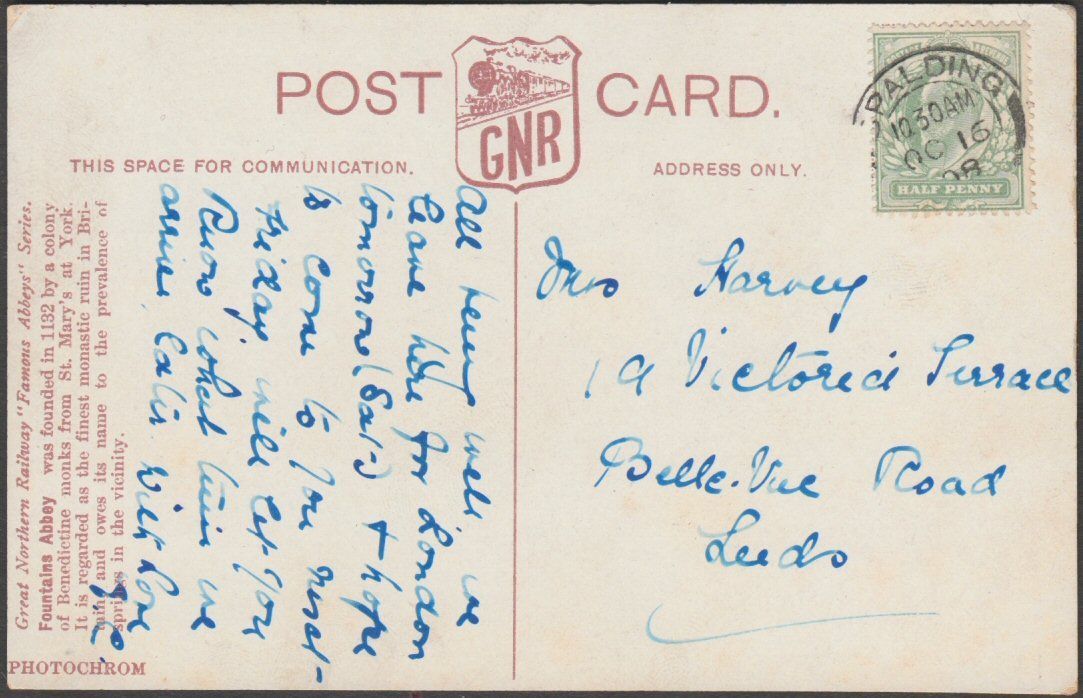 POST CARD.
GNR
THIS SPACE FOR COMMUNICATION.
ADDRESS ONLY.
SPALDING
10 30 AM
OC 16
08
HALF PENNY
Great Northern Railway "Famous Abbeys" Series.
Fountains Abbey was founded in 1132 by a colony
of Benedictine monks from St. Mary's at York.
It is regarded as the finest monastic ruin in Bri-
tain, and owes its name to the prevalence of
springs in the vicinity.
All well, we
leave here for London
tomorrow (Sat-) + hope
to come to you next-
Friday will let you
know what time we
arrive later With love
Mrs Harvey
19 Victoria Terrace
Belle-Vue Road
Leeds
PHOTOCHROM